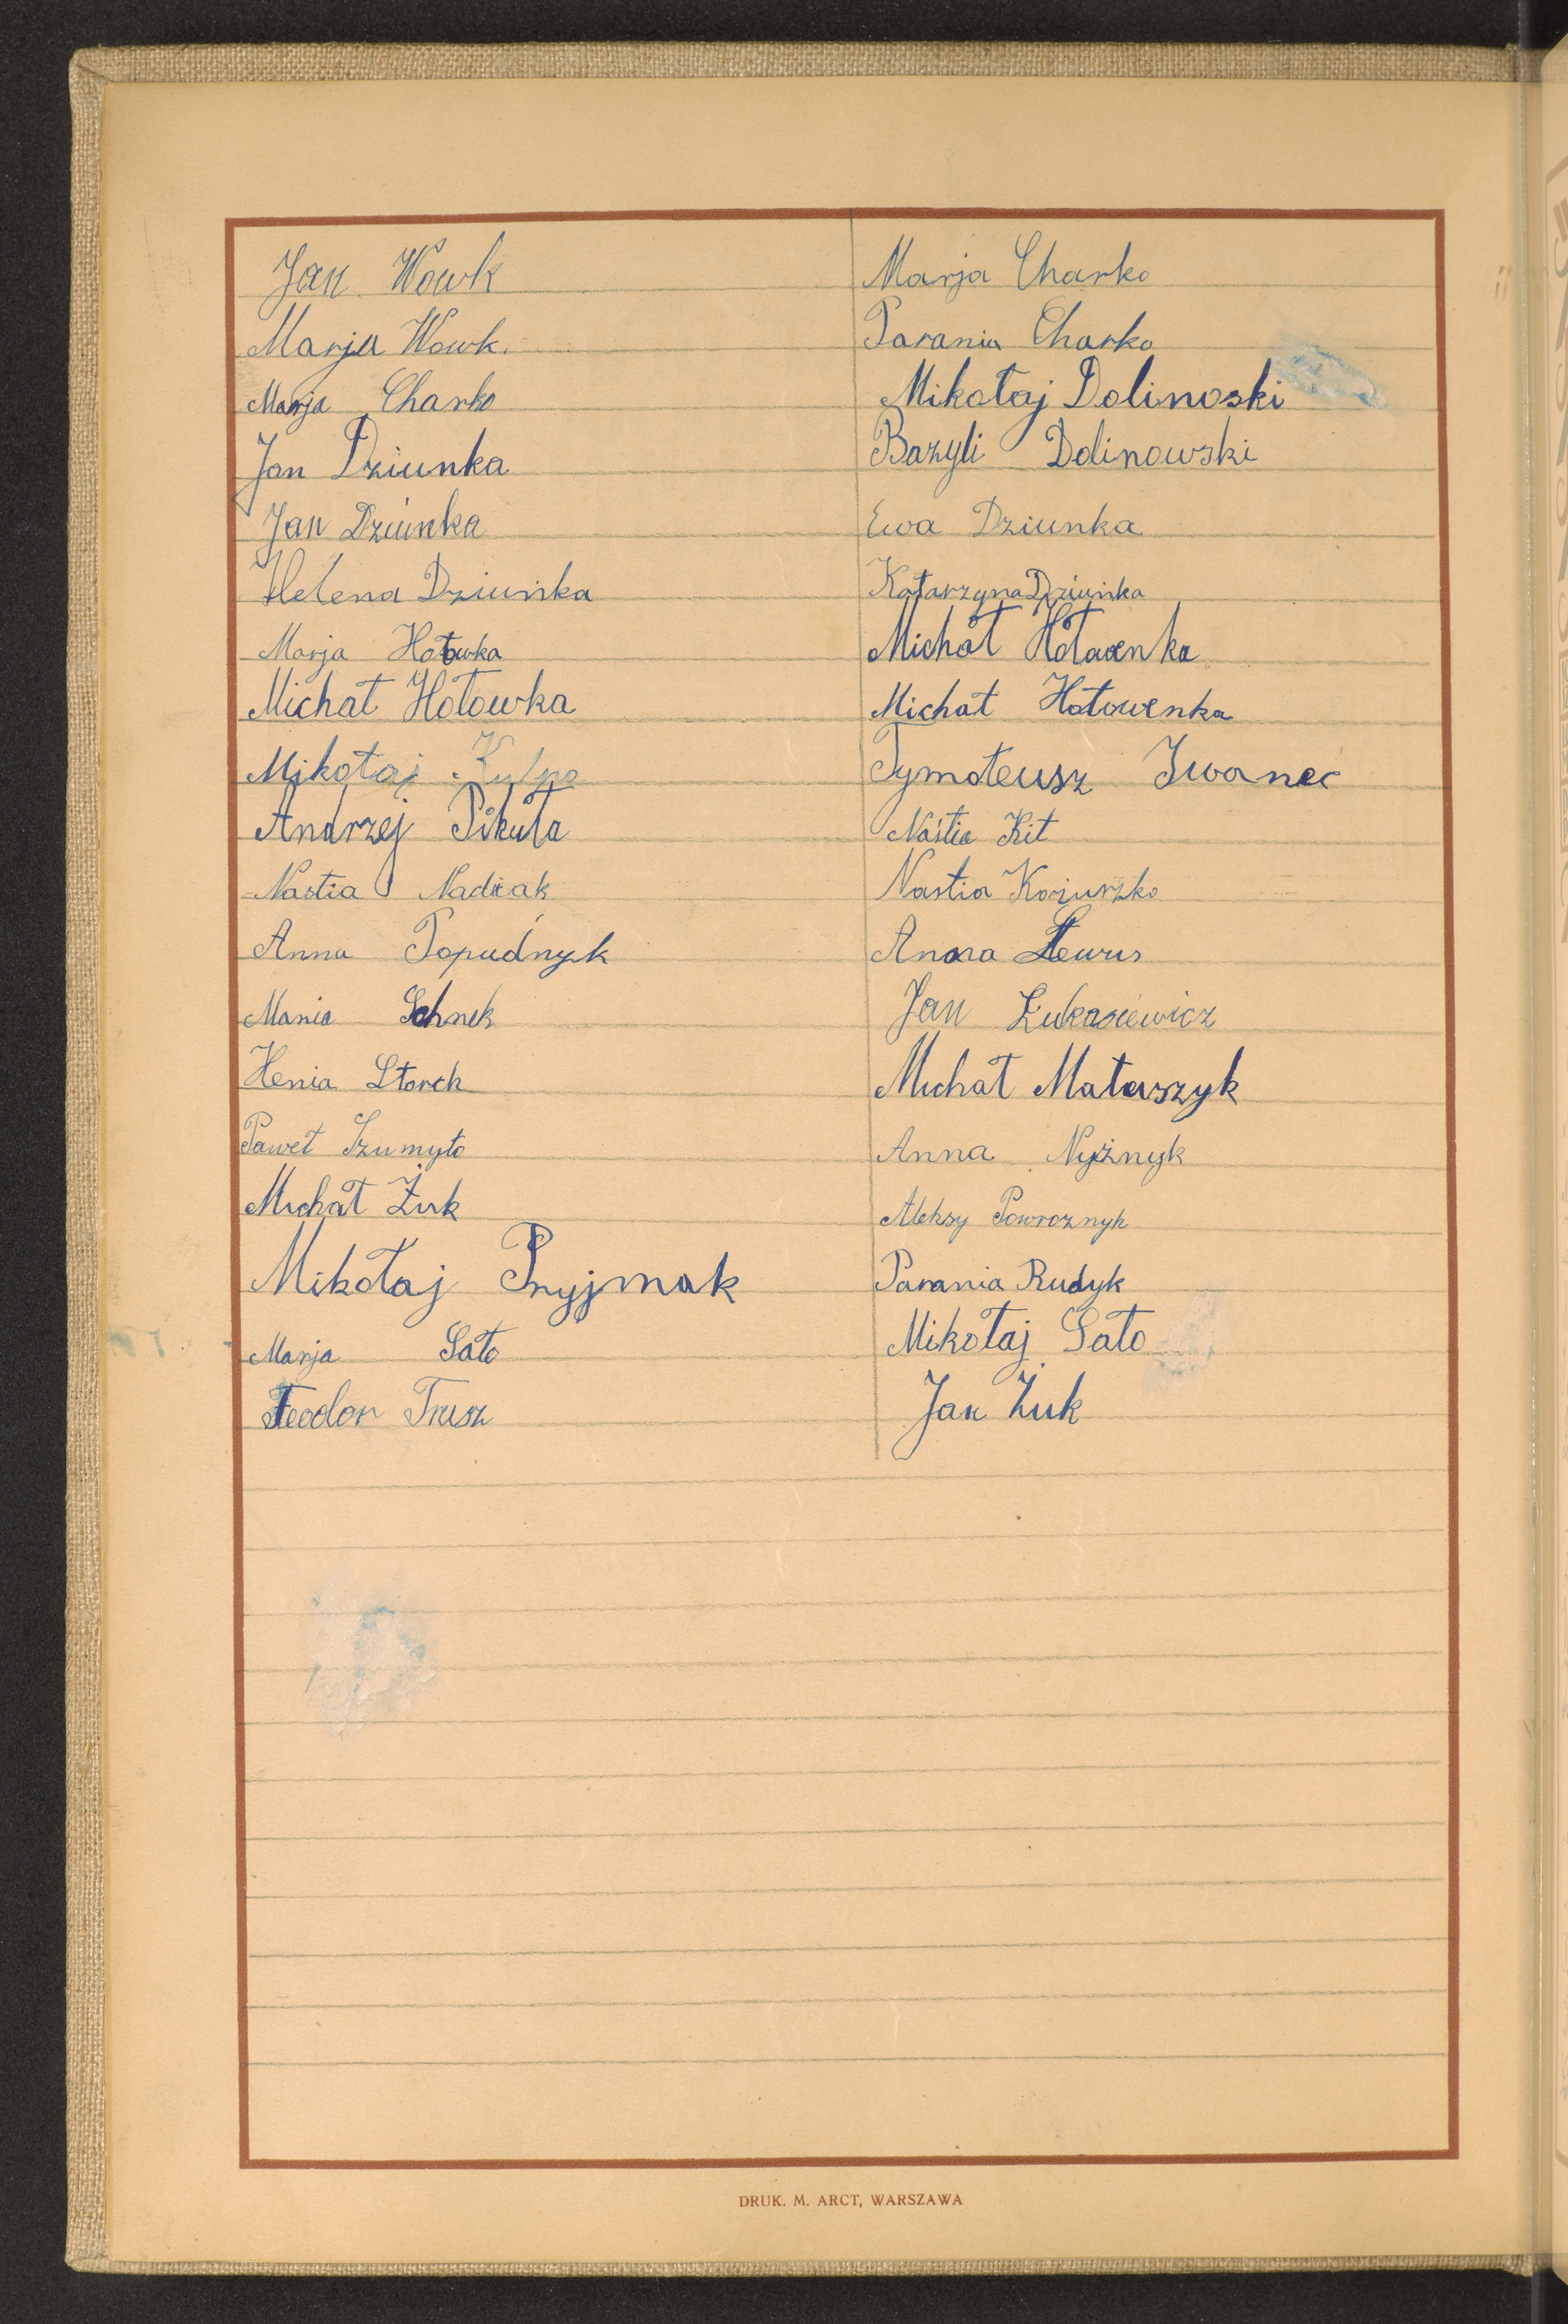 Jan Wowk
Marja Wowk.
Marja Charko
Jan Dziunka
Jan Dziunka
Helena Dziunka
Marja Hołowka
Michał Hołowka
Mikołaj
Andrzej Pikuła
Nastia Nadiak
Anna Popudnyk
Mania Schnek
Henia Storch
Paweł Szumyło
Michał Żuk
Mikołaj Pryjmak
Marja Sało
Teodor Trusz
Marja Charko
Parania Charko
Mikołaj Dolinoski
Bazyli Dolinowski
Ewa Dziunka
Katarzyna Dziunka
Michał
Michał Hołowenka
Tymoteusz Iwanec
Nastia Kit
Nastia
Anna
Jan Łukasiewicz
Michał Matuszyk
Anna Nyżnyk
Aleksy Powroznyk
Parania Rudyk
Mikołaj Sało
Jan Żuk
DRUK. M. ARCT, WARSZAWA